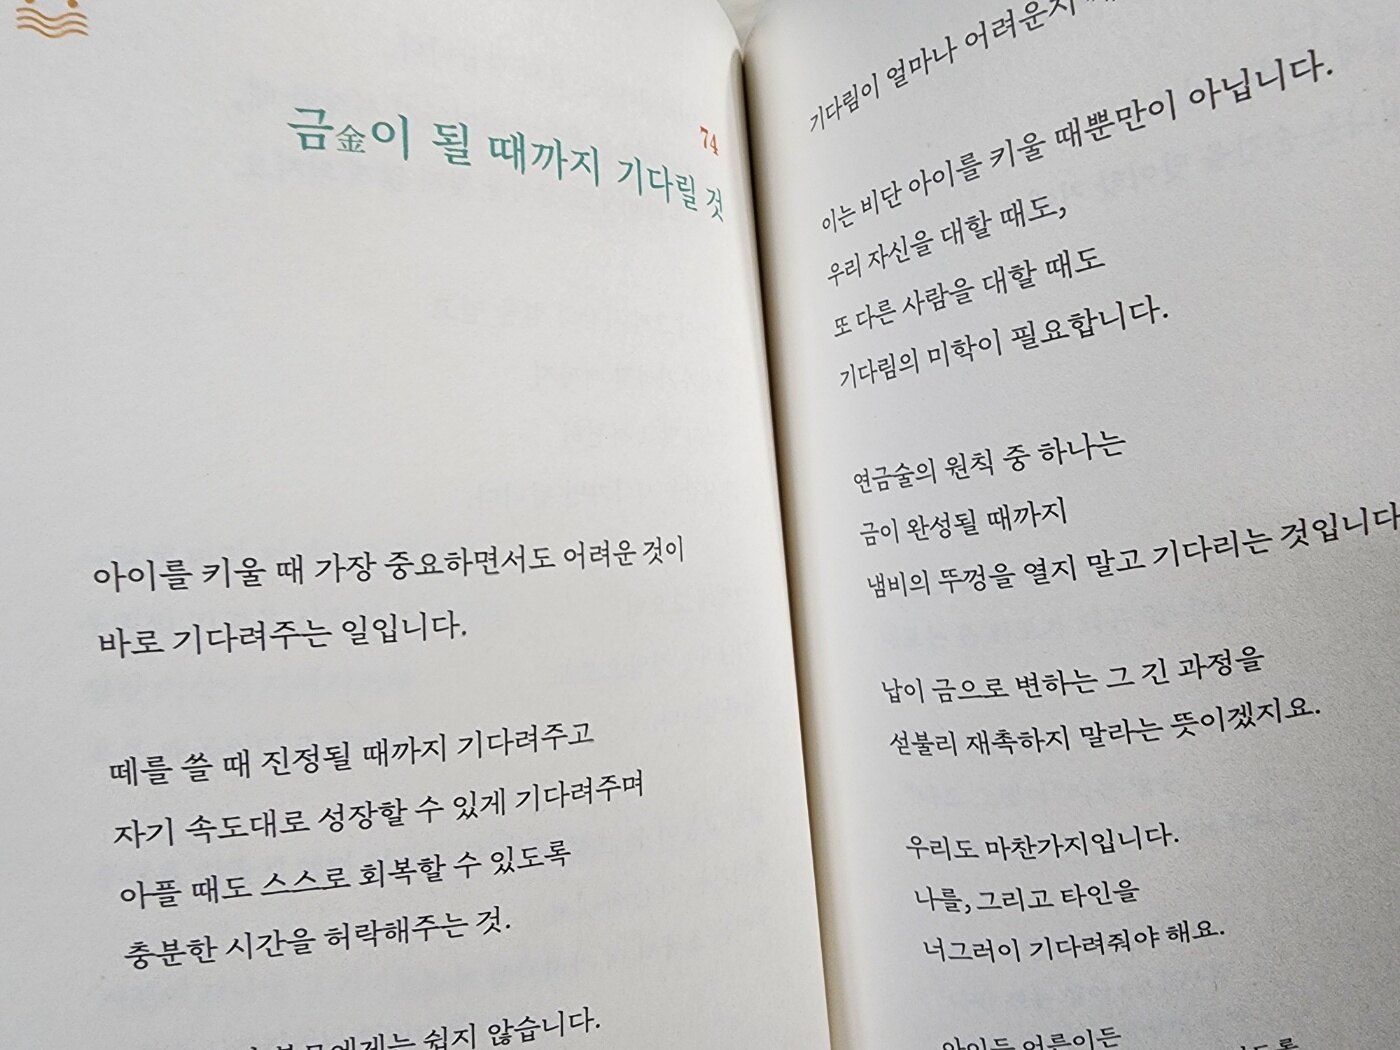 74
금金이 될 때까지 기다릴 것
아이를 키울 때 가장 중요하면서도 어려운 것이
바로 기다려주는 일입니다.
떼를 쓸 때 진정될 때까지 기다려주고
자기 속도대로 성장할 수 있게 기다려주며
아플 때도 스스로 회복할 수 있도록
충분한 시간을 허락해주는 것.
쉽지 않습니다.
기다림이 얼마나 어려운지
이는 비단 아이를 키울 때뿐만이 아닙니다.
우리 자신을 대할 때도,
또 다른 사람을 대할 때도
기다림의 미학이 필요합니다.
연금술의 원칙 중 하나는
금이 완성될 때까지
냄비의 뚜껑을 열지 말고 기다리는 것입니다
납이 금으로 변하는 그 긴 과정을
섣불리 재촉하지 말라는 뜻이겠지요.
우리도 마찬가지입니다.
나를, 그리고 타인을
너그러이 기다려줘야 해요.
아이든 어른이든